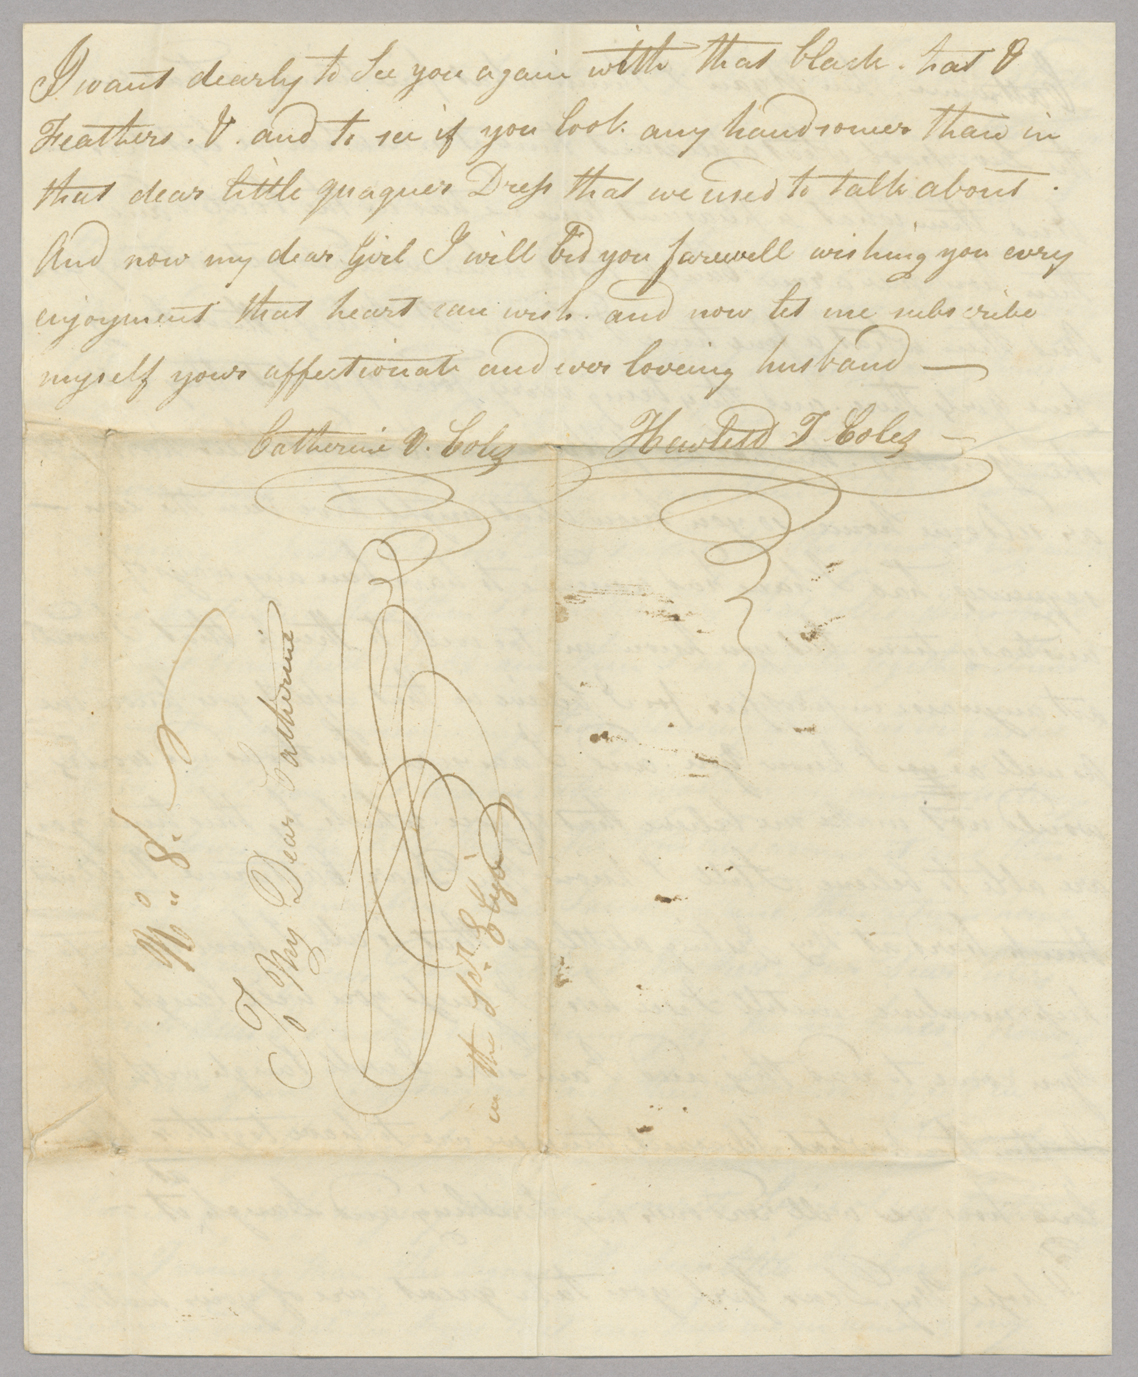 I want dearly to See you again with that black. hat &
Feathers. &. and to see if you look any handsomer than in
that dear little quaquer Dress that we used to talk about.
And now my dear Girl I will bid you farewell wishing you evry
enjoyment that heart can wish. and now let me subscribe
myself yours affectionate and ever loveing husband —
Catherine V. Coles — Hewlett T Coles —
No. 8.
To My Dear Catherine
in the